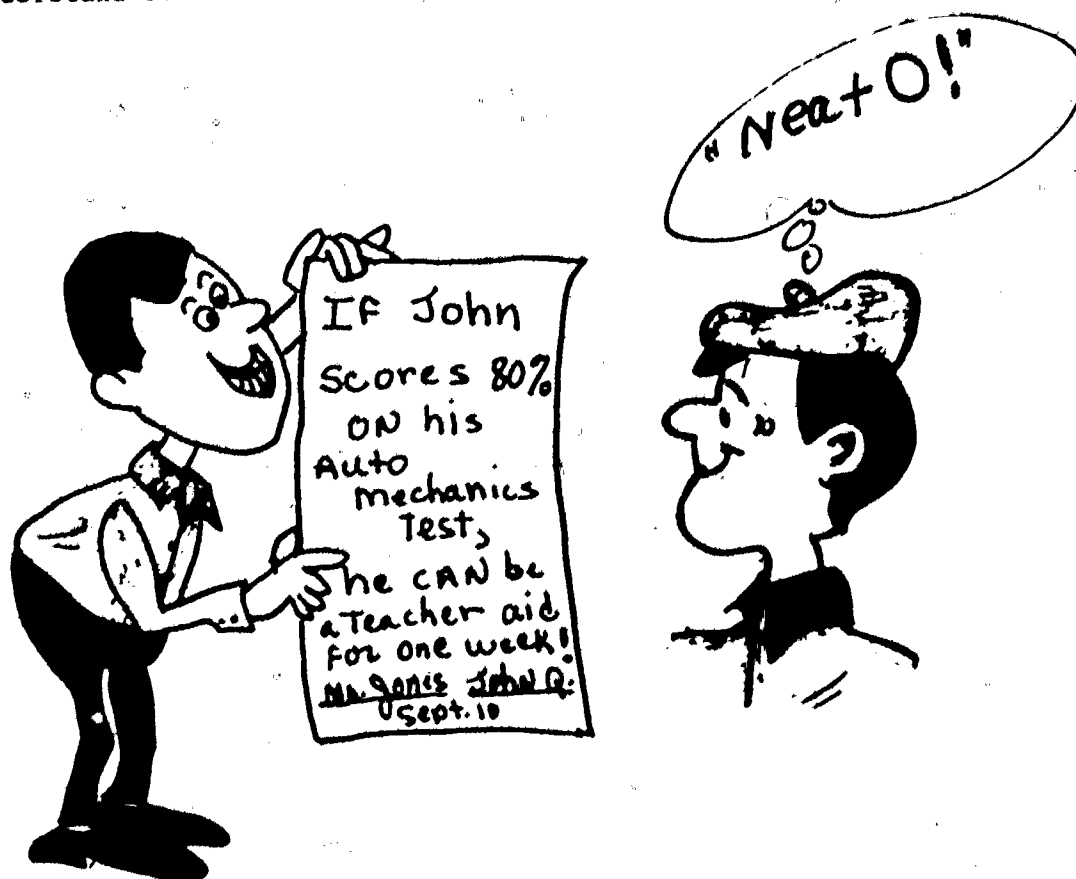 "Neat O!"
If John
Scores 80%
ON his
Auto
mechanics
Test,
he CAN be
a Teacher aid
For one week!
Mr. Jones John Q.
Sept. 10